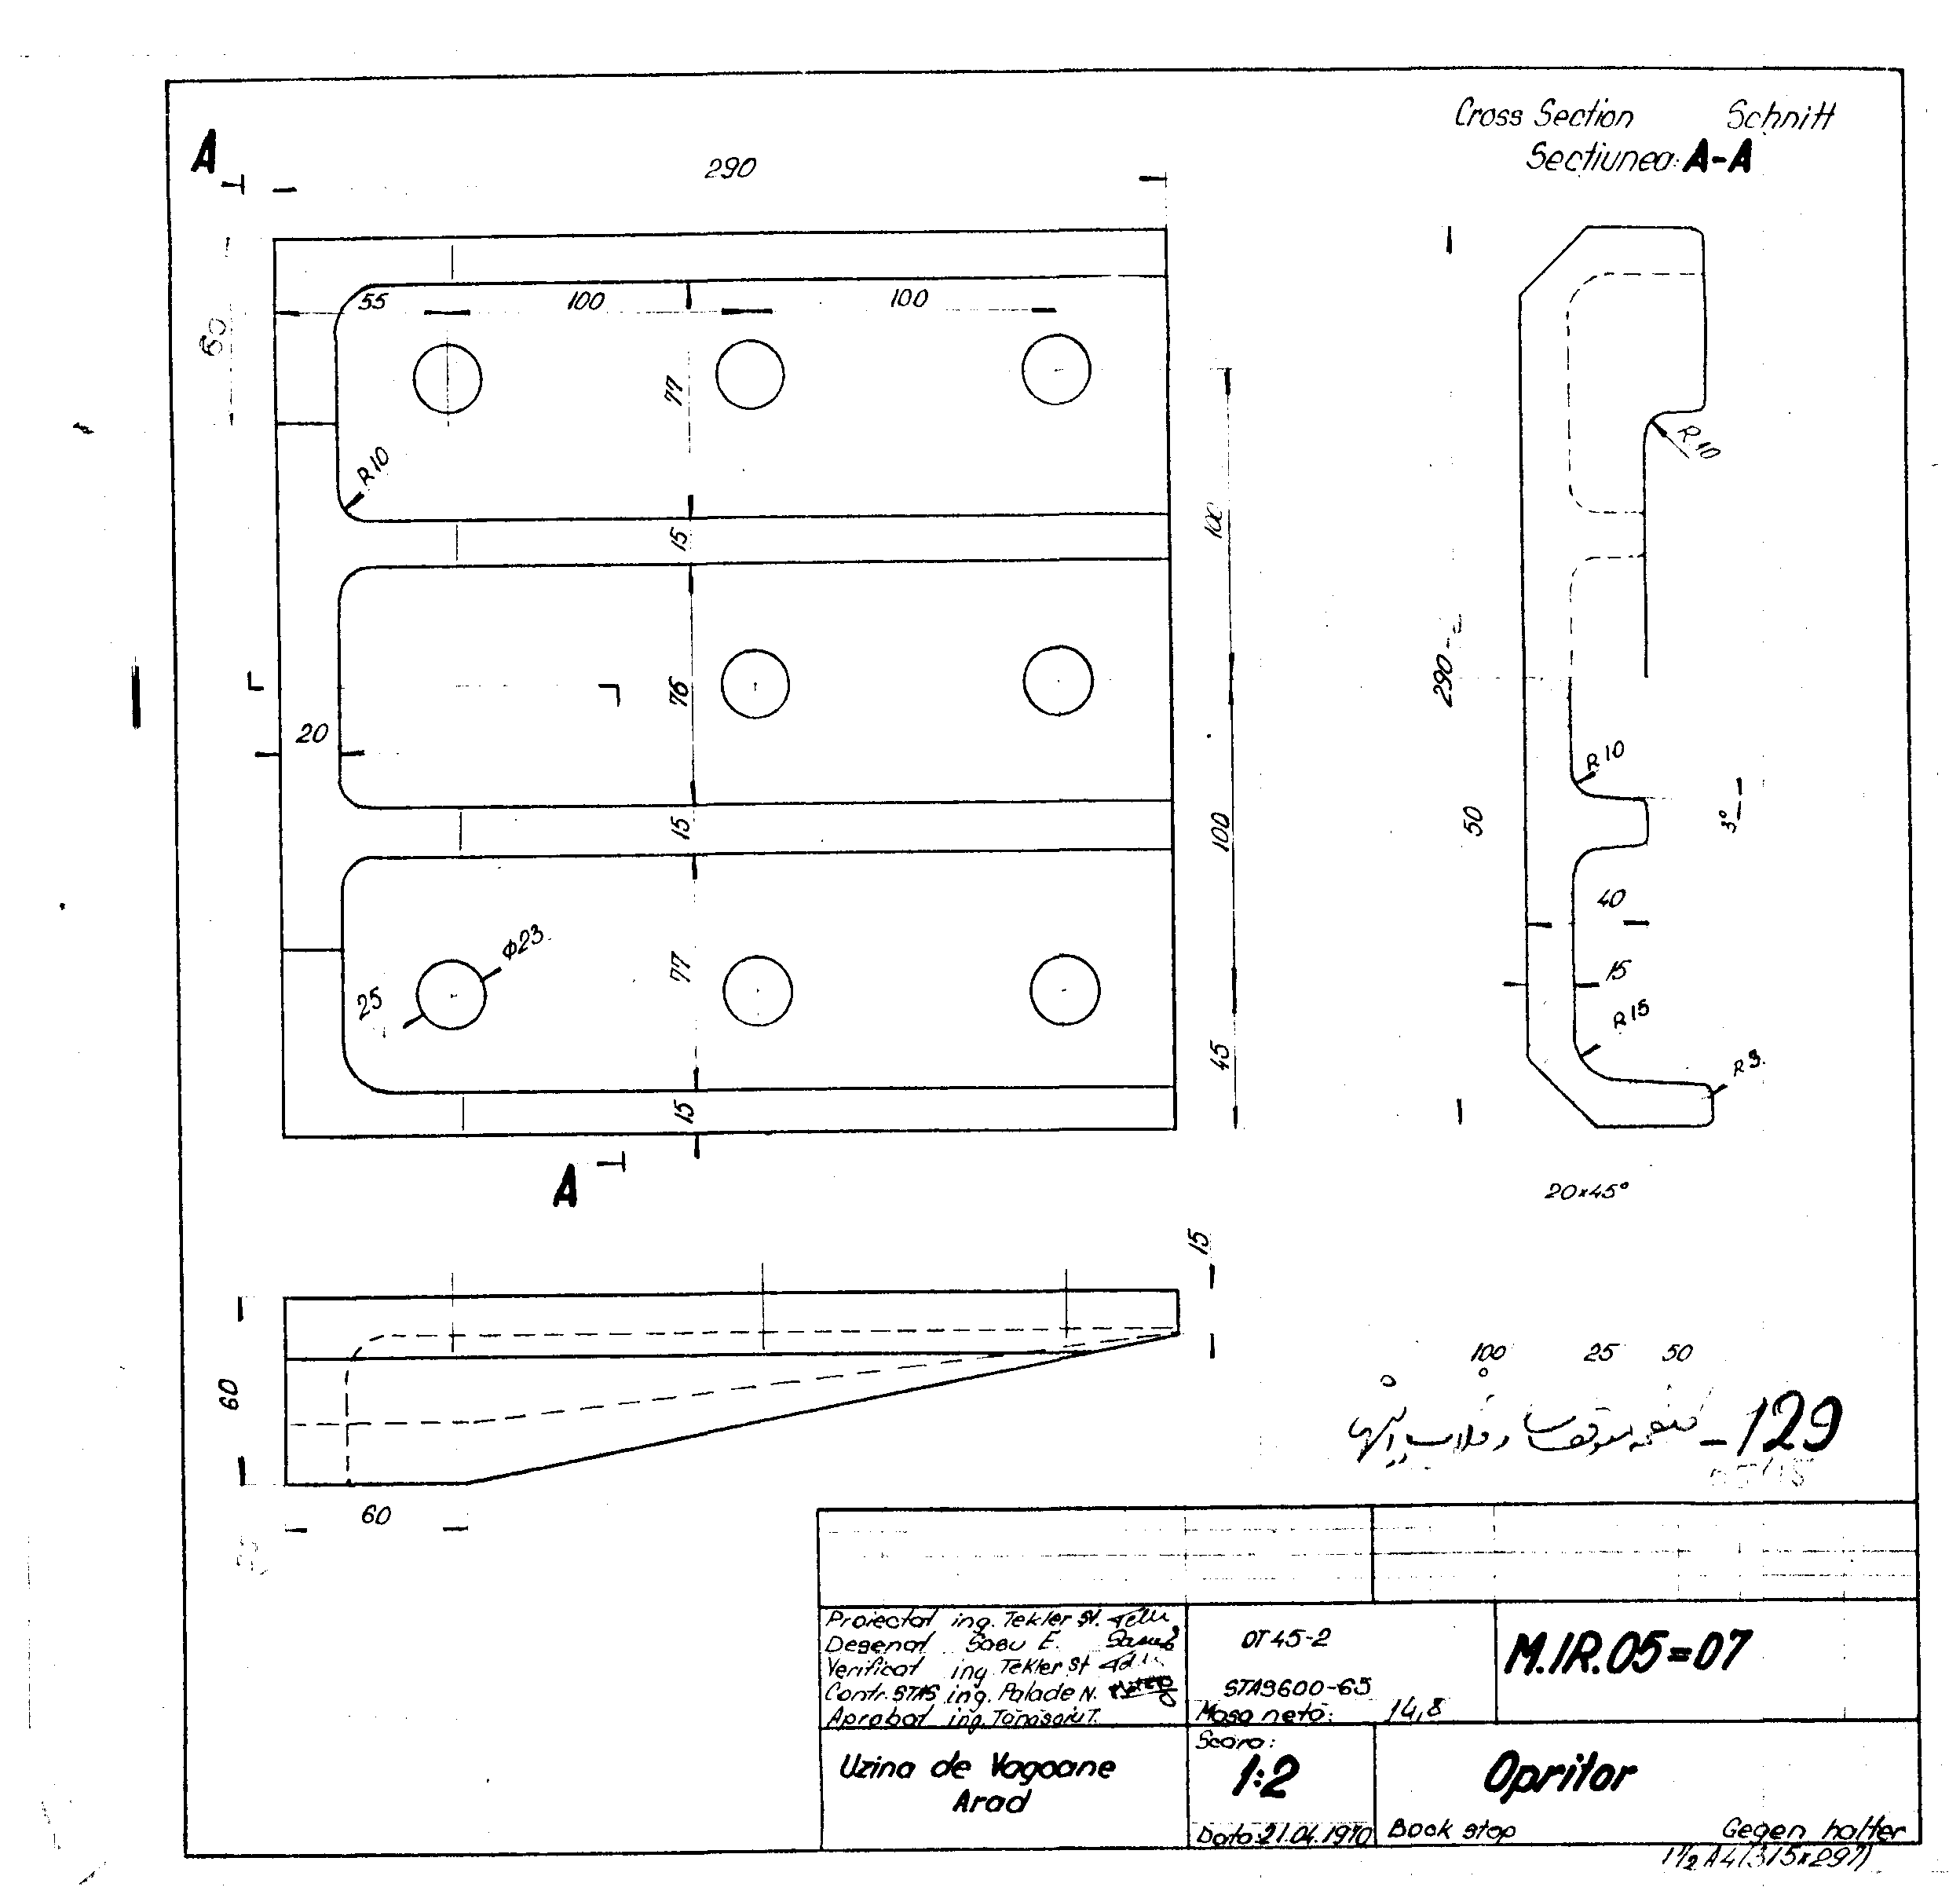 Cross Section Schnitt
Sectiunea: A-A
A
290
60
55 100 100
77
R10
15
76
20
15
77
Φ23
25
15
100
100
45
A
R10
290
R10
50
3°
40
15
R15
R3
20×45°
15
60
60
100 25 50
-129
Proiectat ing. Tekler St.
Desenat Sabu E.
Verificat ing Tekler St
Contr. STAS ing. Palade N.
Aprobat ing. Tănăsoiu T.
OT 45-2
STAS600-65
Masa netă: 14,8
M.IR.05=07
Uzina de Vagoane
Arad
Scara:
1:2
Data: 21.04.1970
Opritor
Back stop Gegen halter
1 1/2 A4 (315×297)